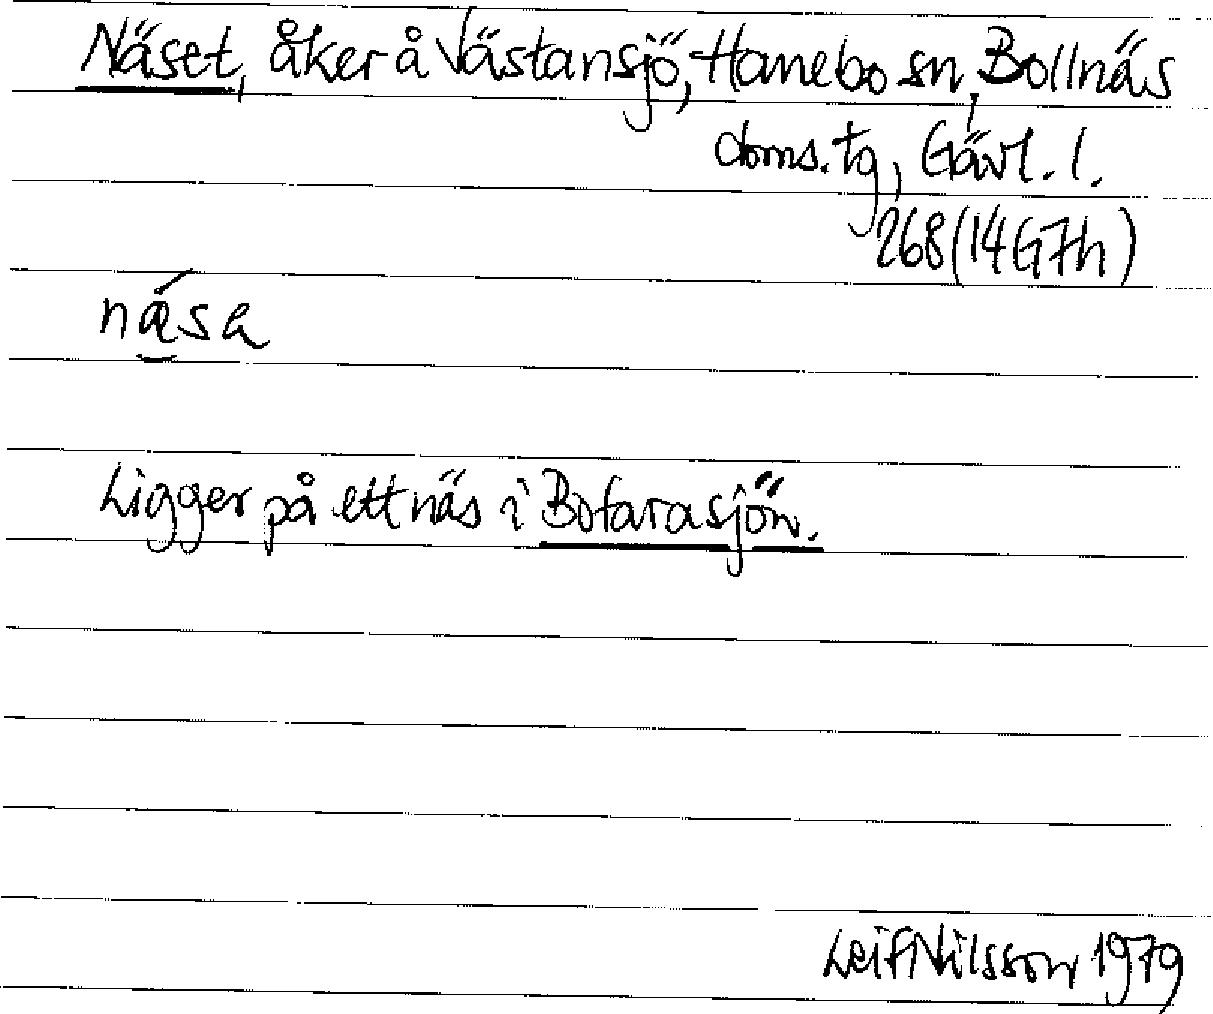 Näset, åker å Västansjö, Hanebo sn, Bollnäs
doms. tg, Gävl. l.
268 (14G7h)
nǽsa
Ligger på ett näs i Bofarasjön.
Leif Nilsson 1979